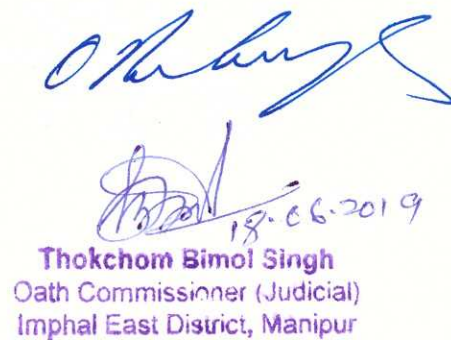 18.06.2019
Thokchom Bimol Singh
Oath Commissioner (Judicial)
Imphal East District, Manipur